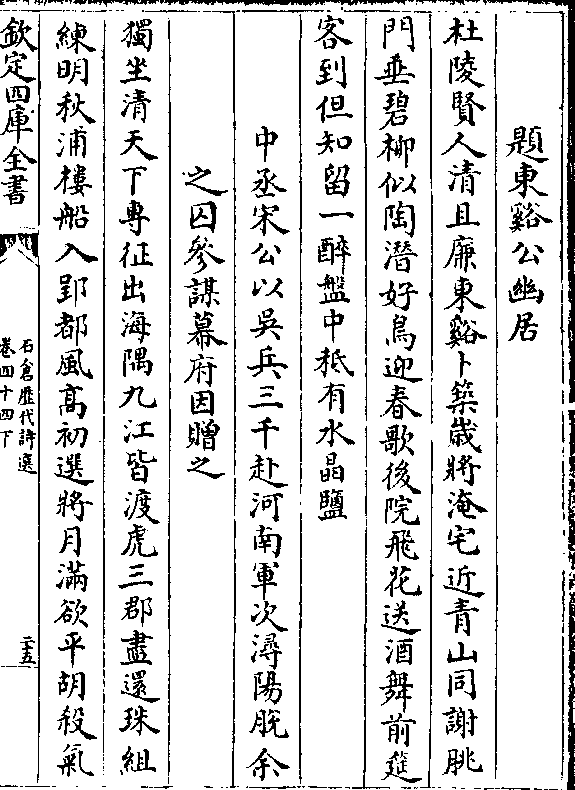 題東谿公幽居
杜陵賢人清且廉東谿卜築歲將淹宅近青山同謝朓
門垂碧柳似陶潛好鳥迎春歌後院飛花送酒舞前筵
客到但知留一醉盤中秪有水晶鹽
中丞宋公以吳兵三千赴河南軍次潯陽脫余
之囚參謀幕府因贈之
獨坐清天下專征出海隅九江皆渡虎三郡盡還珠組
練明秋浦樓船入郢都風高初選將月滿欲平胡殺氣
欽定四庫全書
石倉歷代詩選
卷四十四下
二五